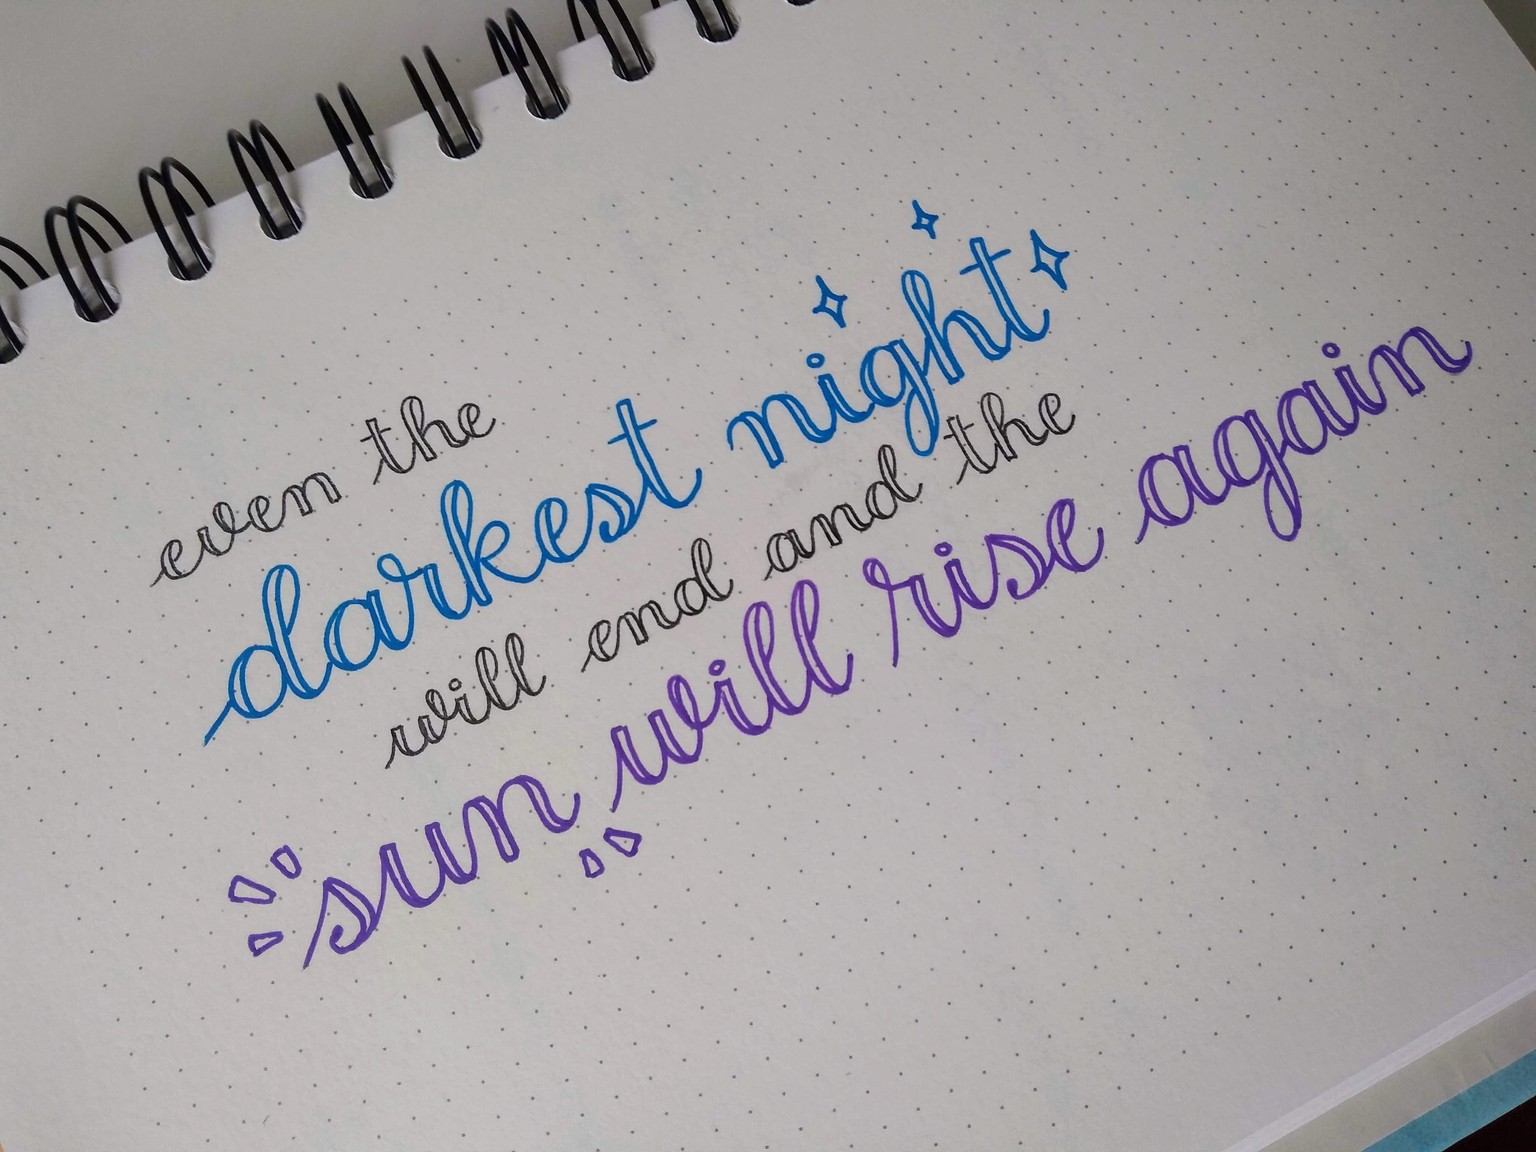 even the
darkest night
will end and the
sun will rise again